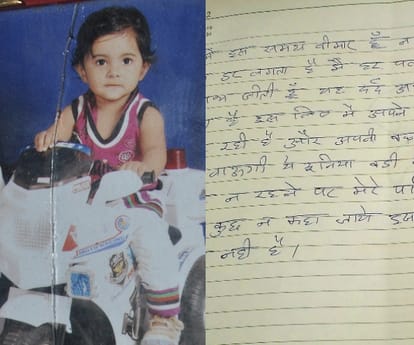 इस समय बीमार हूँ न
डर लगता है मै हर पल
जीती हूँ यह दर्द
है इस लिए मै अपने
रही हूँ और अपनी
जाऊगी ये दुनिया बडी
न रहने पर मेरे
कुछ न कहा जाये इस
नही है।